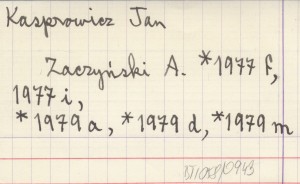 Kasprowicz Jan
Zaczyński A. *1977 f,
1977 i,
*1979 a, *1979 d, *1979 m